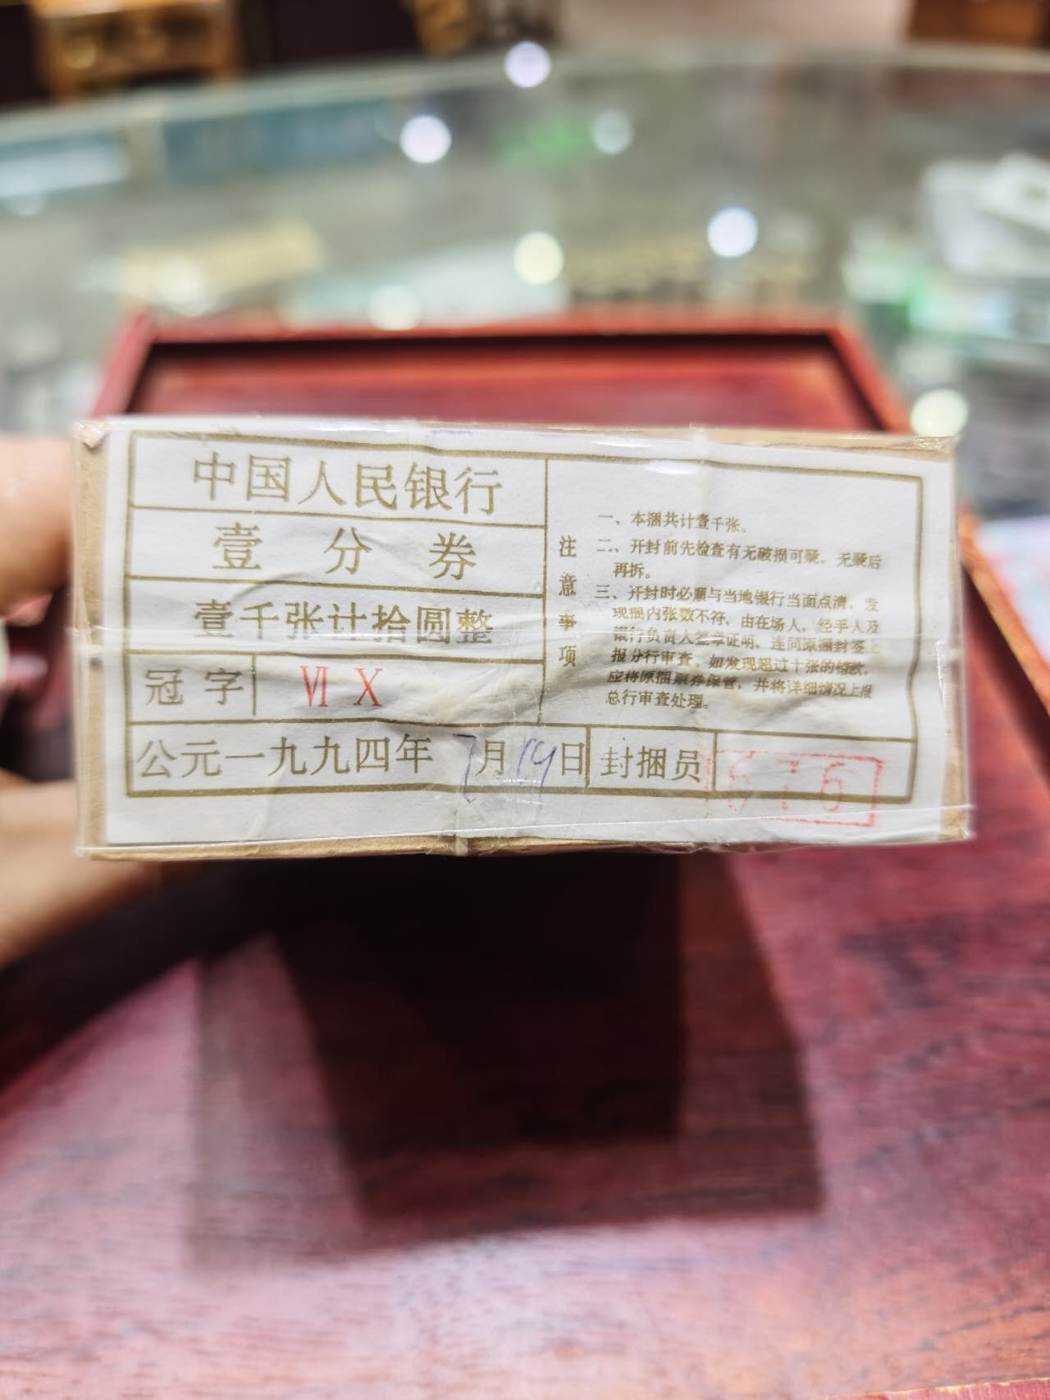 中国人民银行
壹分券
壹千张计拾圆整
冠字 Ⅵ Ⅹ
公元一九九四年7月19日 封捆员 676
注意事项
一、本捆共计壹千张。
二、开封前先检查有无破损可疑，无疑后
再拆。
三、开封时必需与当地银行当面点清，发
现捆内张数不符，由在场人，经手人及
银行负责人签章证明，连同原捆封签上
报分行审查，如发现超过十张的错款，
应将原捆票券保管，并将详细情况上报
总行审查处理。